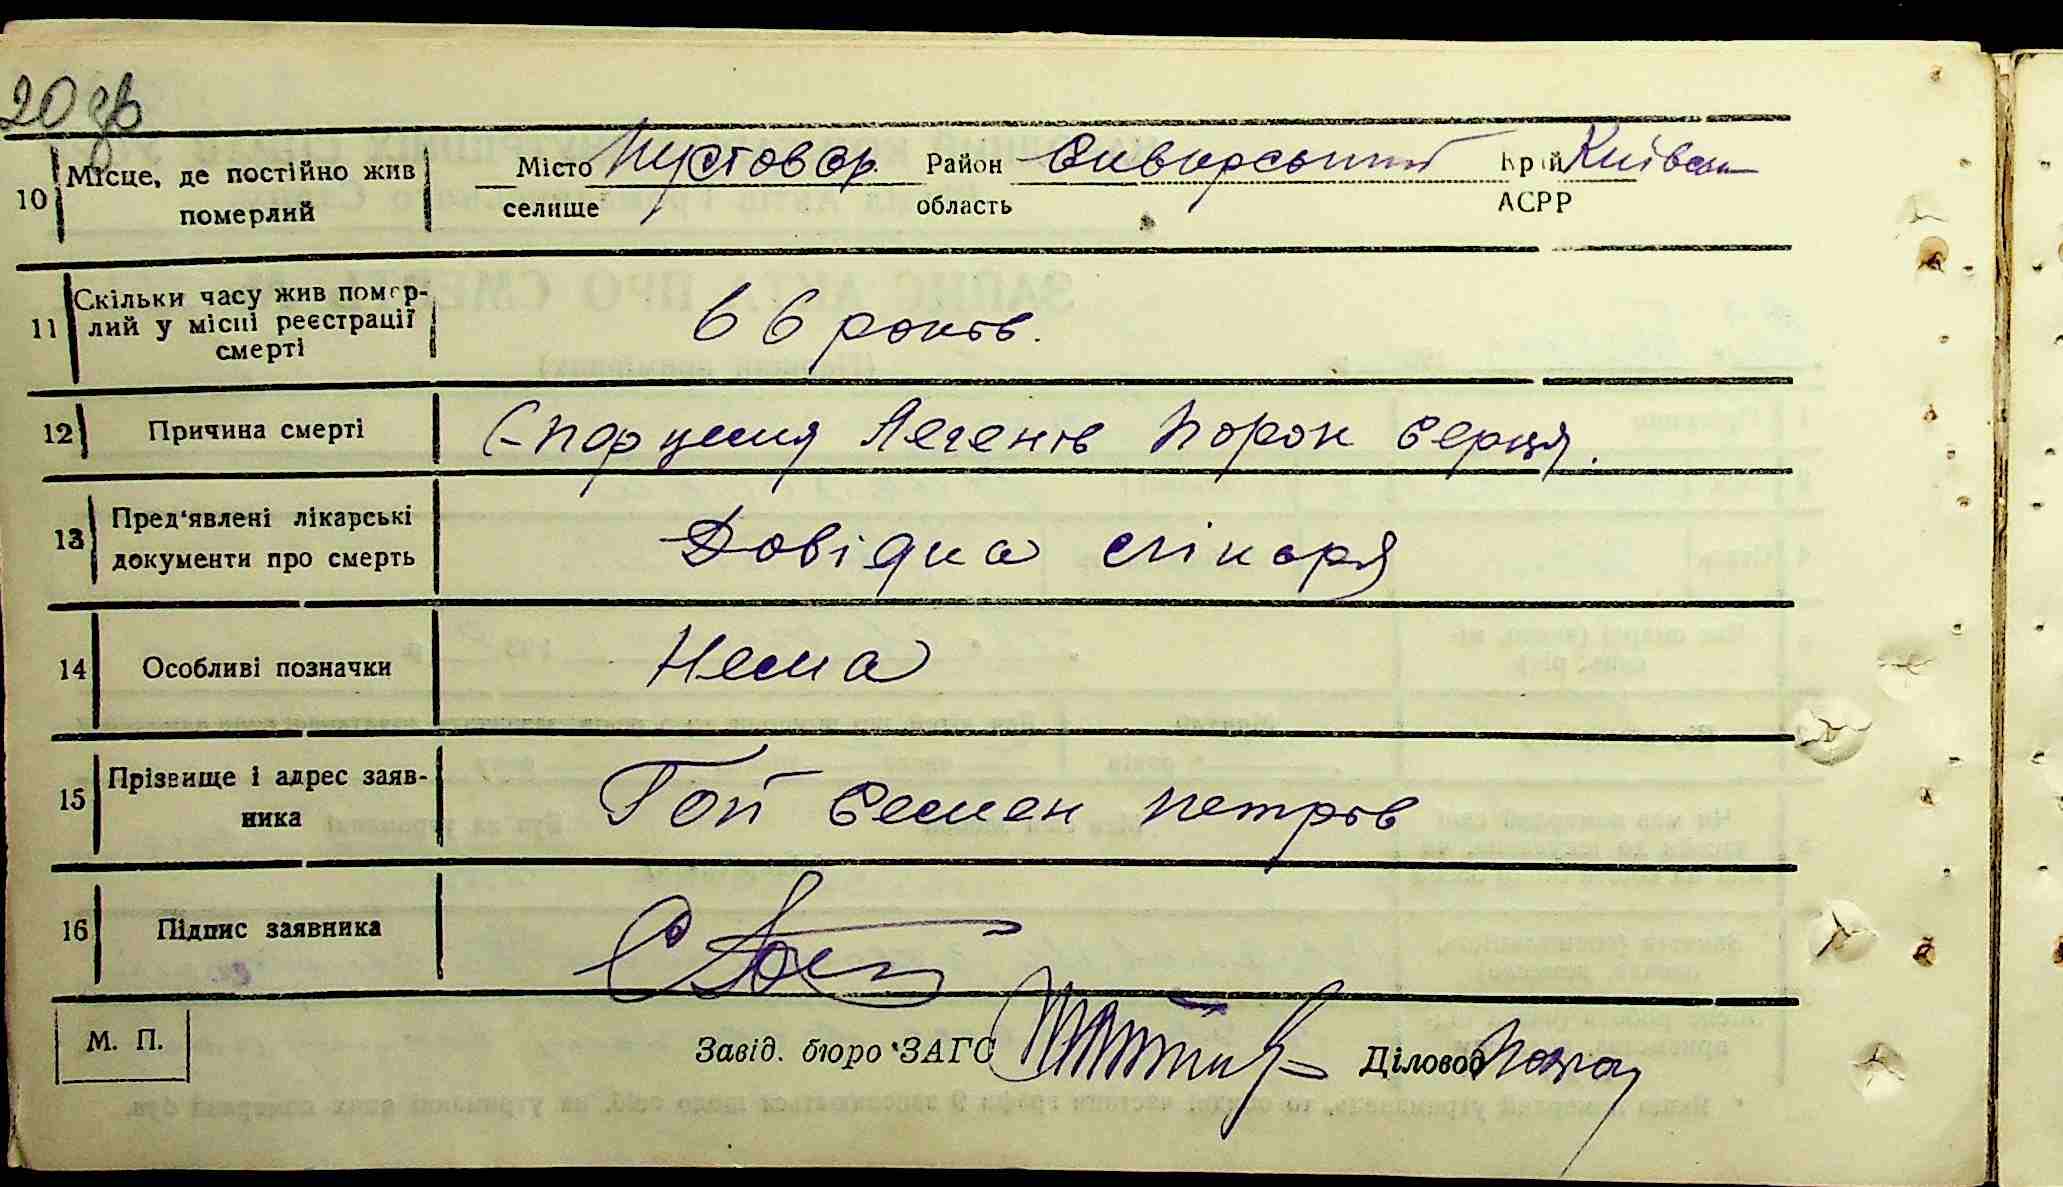 20 зв
10 Місце, де постійно жив Місто Пустовар. Район Сквирський Край Київськ
померлий селище область АСРР
11 Скільки часу жив помер-
лий у місці реєстрації
смерті
66 років.
12 Причина смерті Легенів Порок серця.
13 Пред'явлені лікарські
документи про смерть
Довідка лікаря
14 Особливі позначки Нема
15 Прізвище і адрес заяв-
ника
Гой Семен Петров
16 Підпис заявника
М. П.
Завід. бюро ЗАГС Діловод